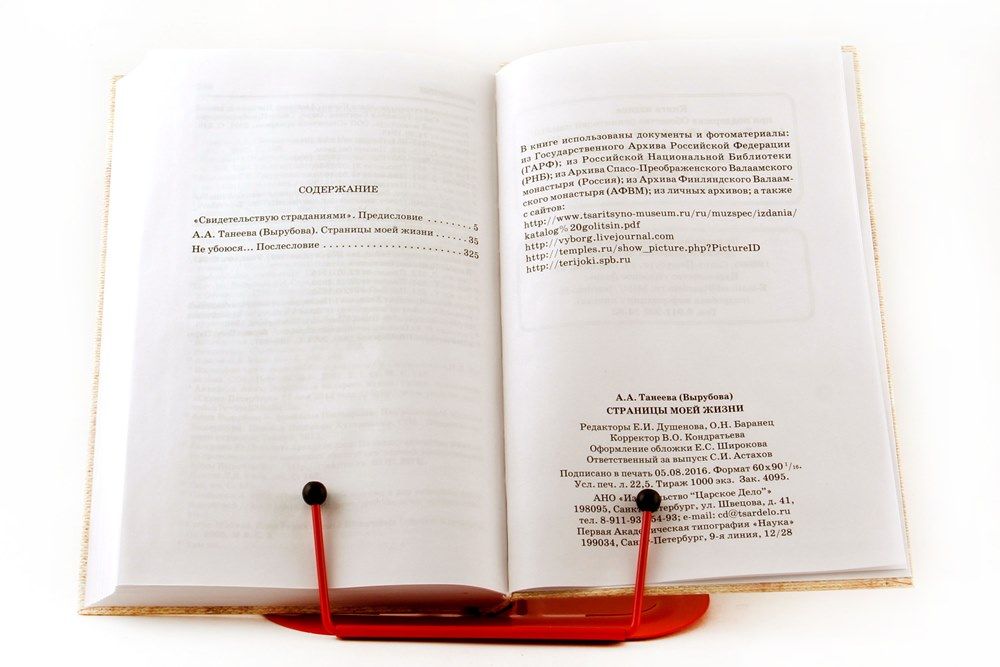 СОДЕРЖАНИЕ
«Свидетельствую страданиями». Предисловие ...... 5
А.А. Танеева (Вырубова). Страницы моей жизни ..... 35
Не убоюся... Послесловие ..................... 325
В книге использованы документы и фотоматериалы:
из Государственного Архива Российской Федерации
(ГАРФ); из Российской Национальной Библиотеки
(РНБ); из Архива Спасо-Преображенского Валаамского
монастыря (Россия); из Архива Финляндского Валаам-
ского монастыря (АФВМ); из личных архивов; а также
с сайтов:
http://www.tsaritsyno-museum.ru/ru/muzspec/izdania/
katalog%20golitsin.pdf
http://vyborg.livejournal.com
http://temples.ru/show_picture.php?PictureID
http://terijoki.spb.ru
А.А. Танеева (Вырубова)
СТРАНИЦЫ МОЕЙ ЖИЗНИ
Редакторы Е.И. Душенова, О.Н. Баранец
Корректор В.О. Кондратьева
Оформление обложки Е.С. Широкова
Ответственный за выпуск С.И. Астахов
Подписано в печать 05.08.2016. Формат 60х90 1/16.
Усл. печ. л. 22,5. Тираж 1000 экз. Зак. 4095.
АНО «Издательство "Царское Дело"»
198095, Санкт-Петербург, ул. Швецова, д. 41,
тел. 54-93; e-mail: cd@tsardelo.ru
Первая Академическая типография «Наука»
199034, Санкт-Петербург, 9-я линия, 12/28